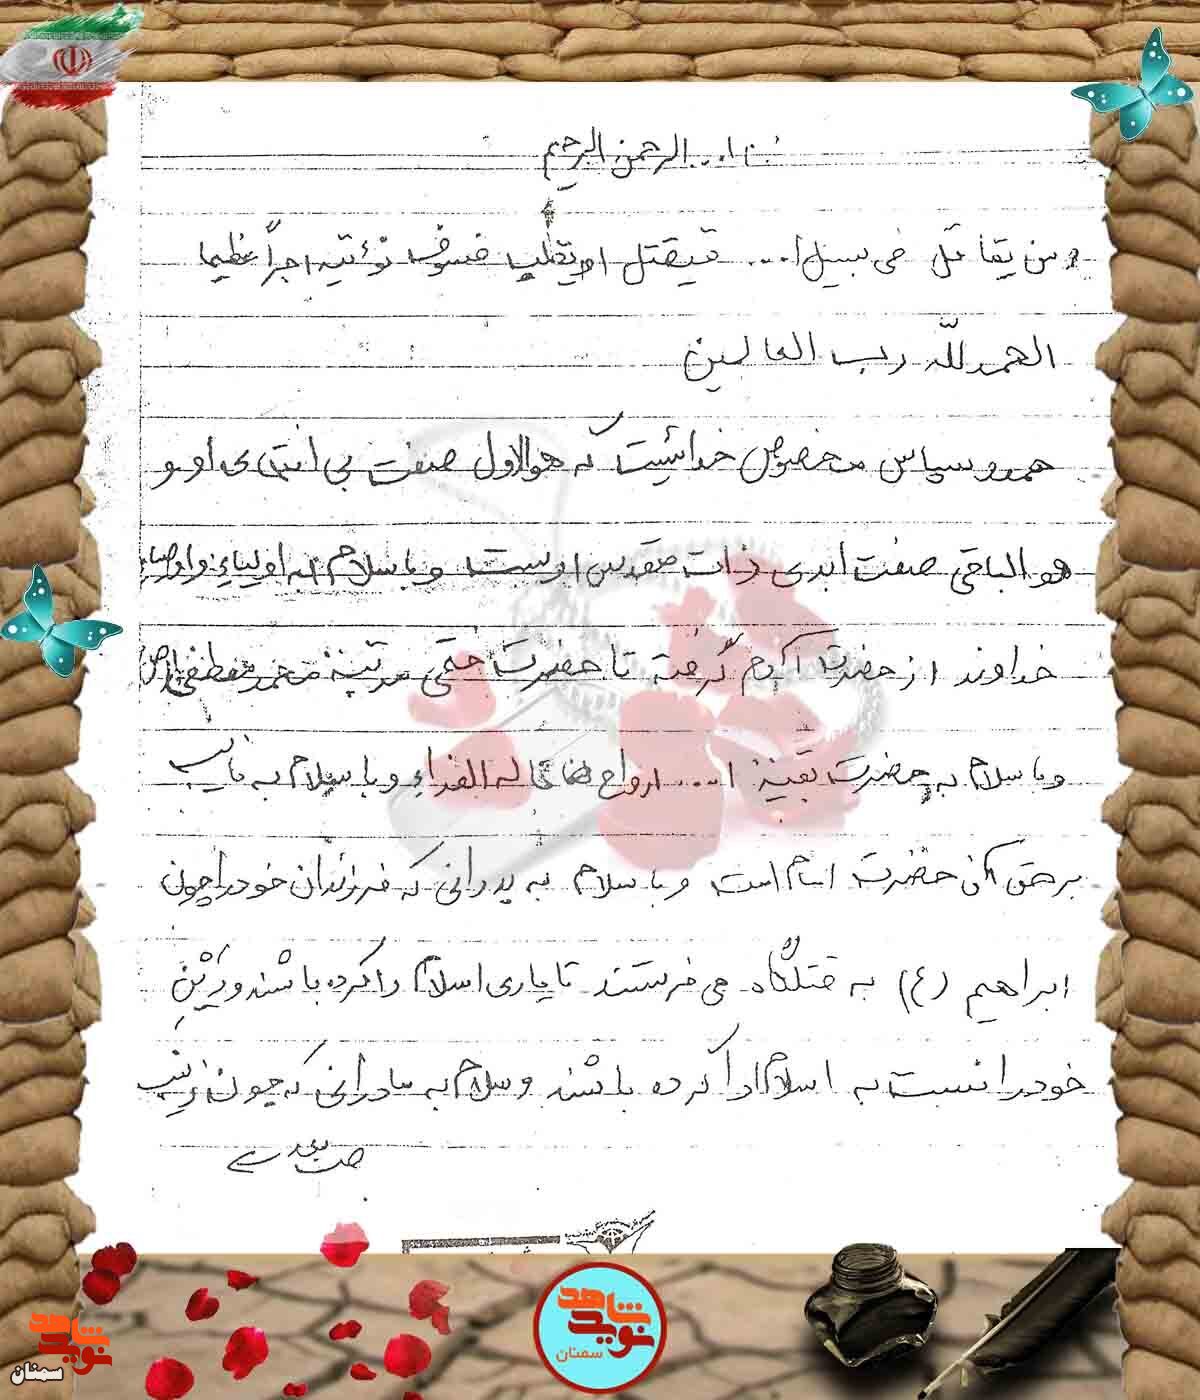 بنا ا... الرحمن الرحیم
ومن یقاتل فی سبیل ا... فیقتل او یغلب فسوف نؤتیه اجراً عظیما
الحمدلله رب العالمین
حمد و سپاس مخصوص خدائیست که هوالاول صفت بی انتهای او و
هو الباقی صفت ابدی ذات مقدس اوست و با سلام به اولیاء و اوصیاء
خداوند از حضرت آدم گرفته تا حضرت ختمی مرتبه محمد مصطفی (ص)
و با سلام به حضرت بقیة ا... ارواح له الفداء و با سلام به نایب
برحق آن حضرت امام امت و با سلام به پدرانی که فرزندان خود را چون
ابراهیم (ع) به قتلگاه می فرستند تا یاری اسلام را کرده باشند و دین
خود را نسبت به اسلام ادا کرده باشند و سلام به مادرانی که چون زینب
صفحه بعد
نوید شاهد
سمنان
نوید شاهد
سمنان